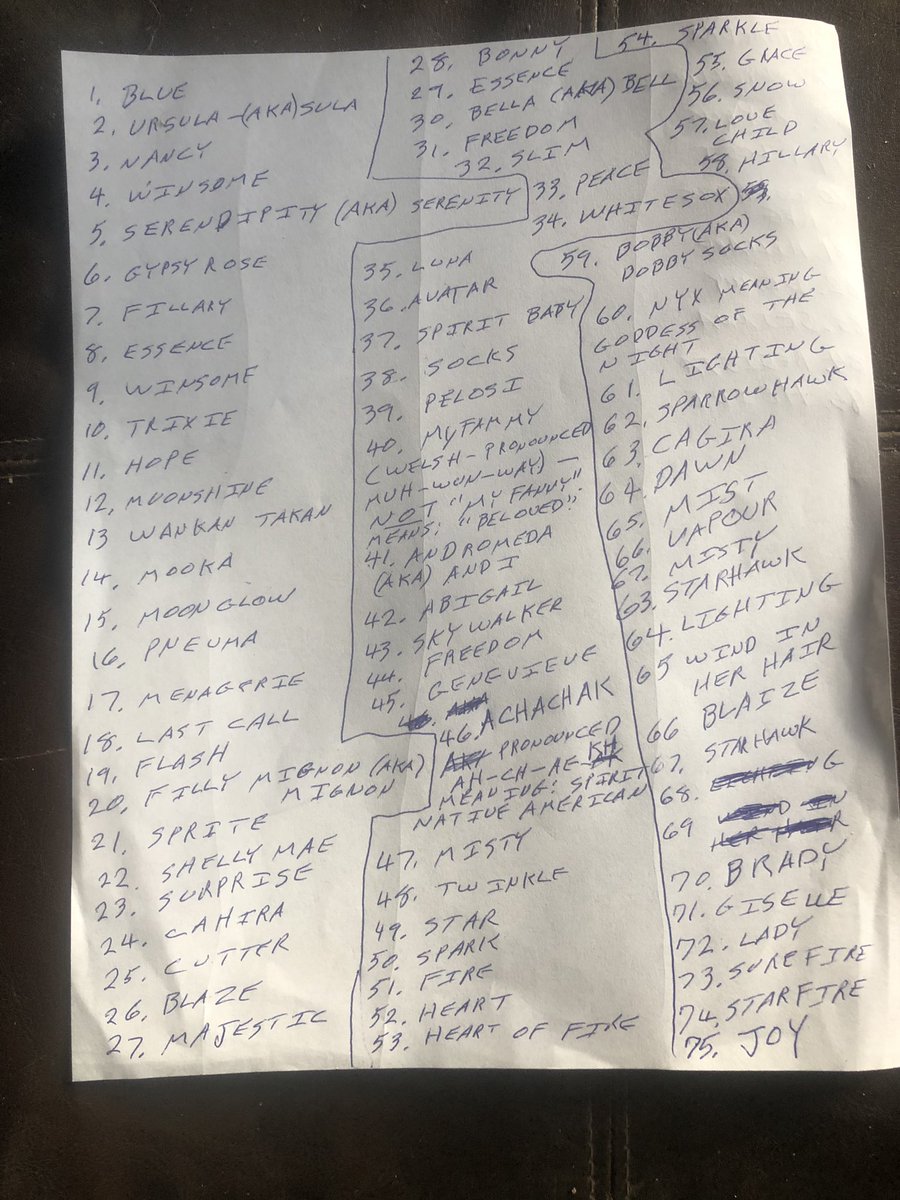 1. BLUE
2. URSULA-(AKA)SULA
3. NANCY
4. WINSOME
5. SERENDIPITY (AKA) SERENITY
6. GYPSY ROSE
7. FILLARY
8. ESSENCE
9. WINSOME
10. TRIXIE
11. HOPE
12. MOONSHINE
13 WANKAN TAKAN
14. MOOKA
15. MOONGLOW
16. PNEUMA
17. MENAGERIE
18. LAST CALL
19. FLASH
20. FILLY MIGNON (AKA)
MIGNON
21. SPRITE
22. SHELLY MAE
23. SURPRISE
24. CAHIRA
25. CUTTER
26. BLAZE
27. MAJESTIC
28. BONNY
29. ESSENCE
30. BELLA (AKA) BELL
31. FREEDOM
32. SLIM
33. PEACE
34. WHITESOX
35. LUNA
36. AVATAR
37. SPIRIT BABY
38. SOCKS
39. PELOSI
40. MYFAMMY
(WELSH-PRONOUNCED
MUH-WUN-WAY)-
NOT "MY FANNY"
MEANS: "BELOVED".
41. ANDROMEDA
(AKA) ANDI
42. ABIGAIL
43. SKYWALKER
44. FREEDOM
45. GENEVIEVE
46. ACHACHAK
PRONOUNCED
AH-CH-AE-KH
MEANING: SPIRIT
NATIVE AMERICAN
47. MISTY
48. TWINKLE
49. STAR
50. SPARK
51. FIRE
52. HEART
53. HEART OF FIRE
54. SPARKLE
55. GRACE
56. SNOW
57. LOVE
CHILD
58. HILLARY
59. BOBBY(AKA)
DOBBY SOCKS
60. NYX MEANING
GODDESS OF THE
NIGHT
61. LIGHTING
62. SPARROWHAWK
63. CAGIRA
64. DAWN
65. MIST
66. VAPOUR
67. MISTY
63. STARHAWK
64. LIGHTING
65 WIND IN
HER HAIR
66 BLAIZE
67. STARHAWK
68.
69
70. BRADY
71. GISELLE
72. LADY
73. SUREFIRE
74. STARFIRE
75. JOY